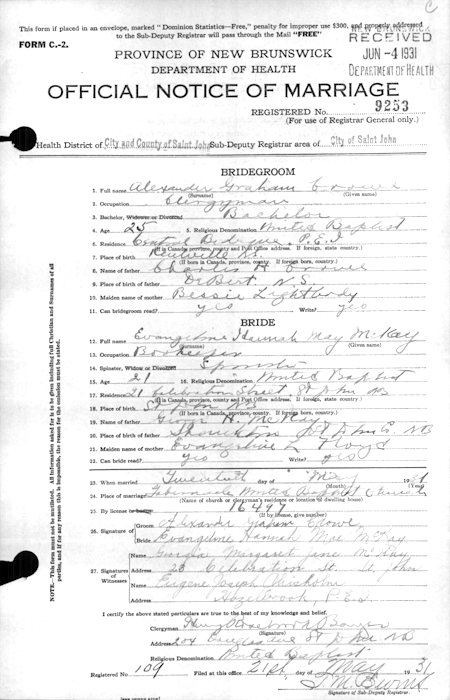 This form if placed in an envelope, marked "Dominion Statistics—Free," penalty for improper use $300, and properly addressed
to the Sub-Deputy Registrar will pass through the Mail "FREE"
FORM C.-2.
PROVINCE OF NEW BRUNSWICK
DEPARTMENT OF HEALTH
NEW BRUNSWICK
RECEIVED
JUN -4 1931
DEPARTMENT OF HEALTH
OFFICIAL NOTICE OF MARRIAGE
REGISTERED No. 9253
(For use of Registrar General only.)
Health District of City and County of Saint John Sub-Deputy Registrar area of City of Saint John
BRIDEGROOM
1. Full name Alexander Graham Crowe
(Surname) (Given name)
2. Occupation Clergyman
3. Bachelor, Widower or Divorced Bachelor
4. Age 25 5. Religious Denomination United Baptist
6. Residence Central Bedeque, P.E.I
(If in Canada, province, county and Post Office address. If foreign, state country.)
7. Place of birth N.S.
(If born in Canada, province, county. If foreign, state country.)
8. Name of father Charles H Crowe
9. Place of birth of father DeBert N.S.
10. Maiden name of mother Bessie Lightbody
11. Can bridegroom read? yes Write? yes
BRIDE
12. Full name Evangeline Hannah May McKay
(Surname) (Given name)
13. Occupation Bookkeeper
14. Spinster, Widow or Divorced Spinster
15. Age 21 16. Religious Denomination United Baptist
17. Residence Celebration Street St John NB
(If in Canada, province, county and Post Office address. If foreign, state country.)
18. Place of birth St John NB
19. Name of father George H. McKay
20. Place of birth of father St John Co NB
21. Maiden name of mother Evangeline L Floyd
22. Can bride read? yes Write? yes
23. When married Twentieth May 1931
24. Place of marriage Tabernacle United Baptist Church
(Name of church or clergyman's residence or location of dwelling house)
25. By license or banns 16497
(If by license, give number)
26. Signature of Groom Alexander Graham Crowe
Bride Evangeline Hannah Mae McKay
27. Signature of Witnesses
Name Georgia Margaret Jane McKay
Address 23 Celebration St. St. John
Name Eugene Joseph Chisholm
Address Hazelbrook P.E.I
I certify the above stated particulars are true to the best of my knowledge and belief.
Clergyman
(Signature)
Address 204 St John NB
Religious Denomination United Baptist
Registered No. 109 Filed at this office 21st May 1931
Signature of Sub-Deputy Registrar.
NOTE.—This form must not be mutilated. All information asked for is to be given including full Christian and Surnames of all
parties, and if this is impossible, the reason for the omission must be stated.